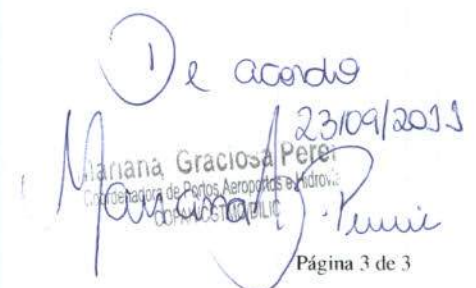 De acordo
23/09/2011
Mariana Graciosa Perei
Coordenadora de Portos Aeroportos e Hidrovi
Página 3 de 3